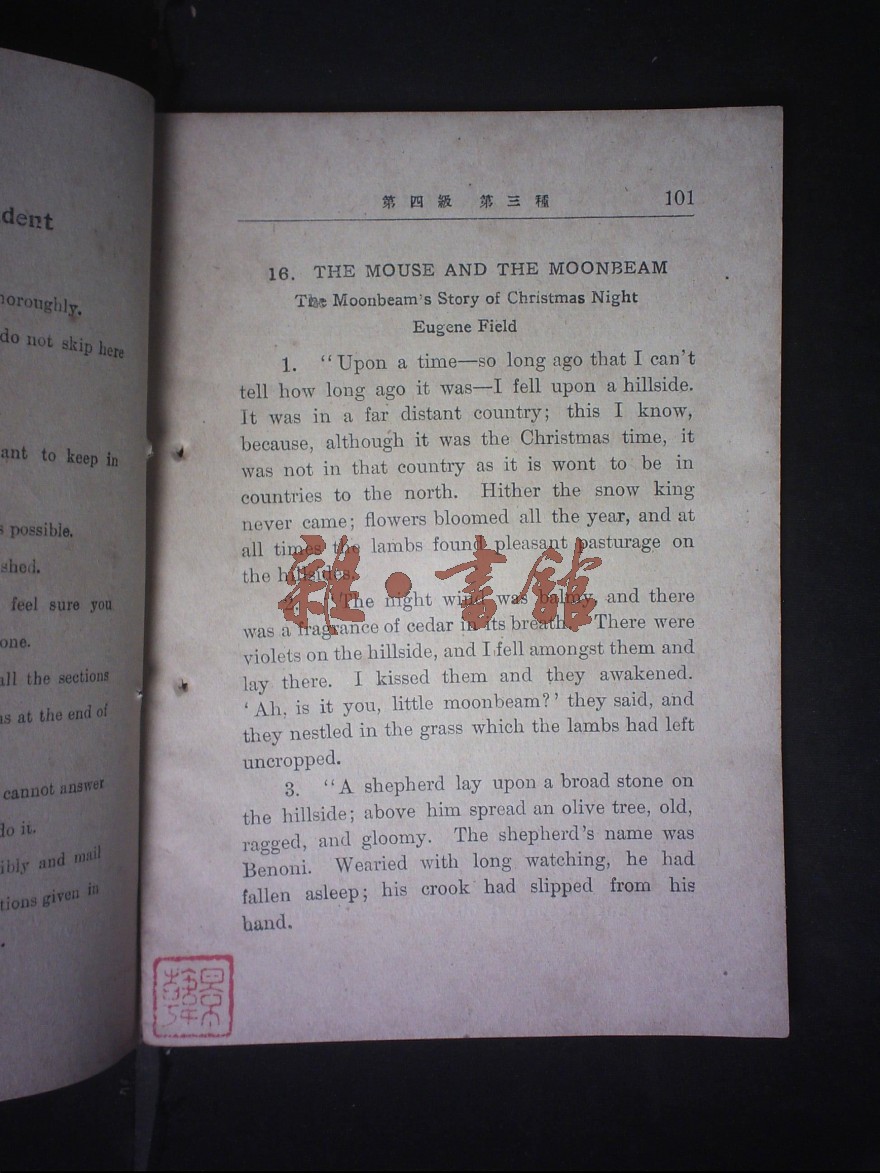 dent
horoughly.
do not skip here
ant to keep in
s possible.
shed.
feel sure you
one.
all the sections
ns at the end of
cannot answer
do it.
ibly and mail
tions given in
第四級 第三種 101
16. THE MOUSE AND THE MOONBEAM
The Moonbeam's Story of Christmas Night
Eugene Field
1. “Upon a time—so long ago that I can't
tell how long ago it was—I fell upon a hillside.
It was in a far distant country; this I know,
because, although it was the Christmas time, it
was not in that country as it is wont to be in
countries to the north. Hither the snow king
never came; flowers bloomed all the year, and at
all times the lambs found pleasant pasturage on
the hillsides.
2. “The night wind was balmy, and there
was a fragrance of cedar in its breath. There were
violets on the hillside, and I fell amongst them and
lay there. I kissed them and they awakened.
‘Ah, is it you, little moonbeam?’ they said, and
they nestled in the grass which the lambs had left
uncropped.
3. “A shepherd lay upon a broad stone on
the hillside; above him spread an olive tree, old,
ragged, and gloomy. The shepherd's name was
Benoni. Wearied with long watching, he had
fallen asleep; his crook had slipped from his
hand.
雜·書館